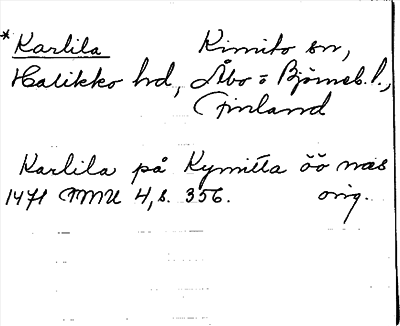 * Karlila Kimito sn,
Halikko hd, Åbo o Björneb. l.,
Finland
Karlila på Kymitta öö næs
1471 FMU 4, s. 356. orig.